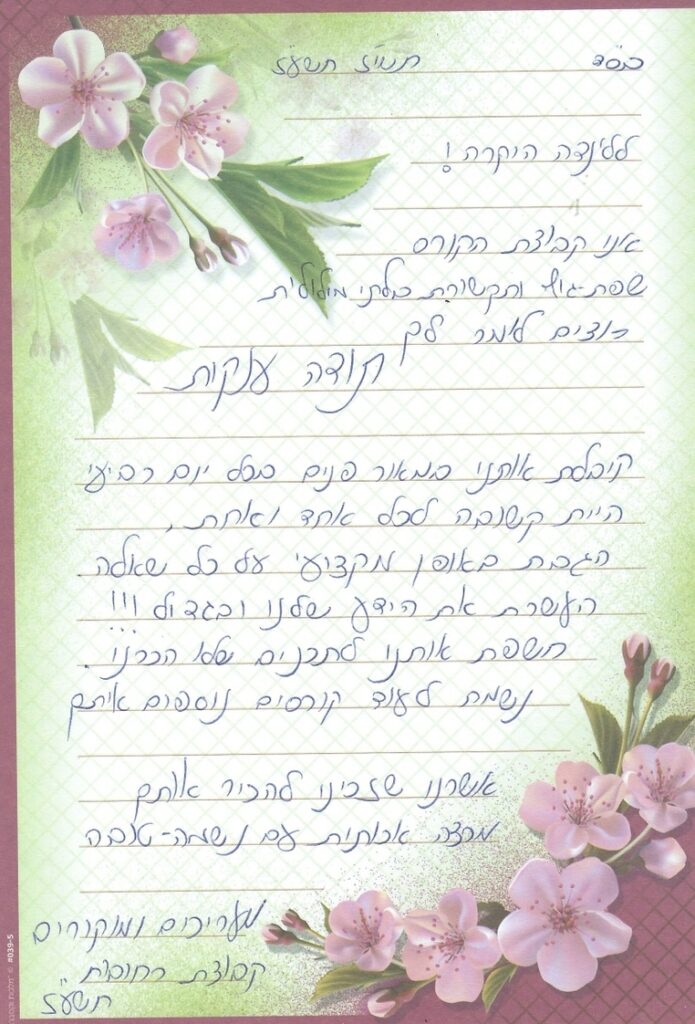 בס"ד
תמוז תשע"ז
ללינדה היקרה!
אנו קבוצת הקורס
שפת-גוף ותקשורת בלתי מילולית
רוצים לאמר לך
תודה ענקית
קיבלת אותנו במאור פנים בכל יום רביעי
היית קשובה לכל אחד ואחת,
הגבת באופן מקצועי על כל שאלה
העשרת את הידע שלנו ובגדול !!!
חשפת אותנו לתכנים שלא הכרנו.
נשמח לעוד קורסים נוספים איתך
אושרנו שזכינו להכיר אותך
מרצה אכותית עם נשמה-טובה
מעריכים ומוקירים
קבוצת רחובות
תשע"ז
#039-5